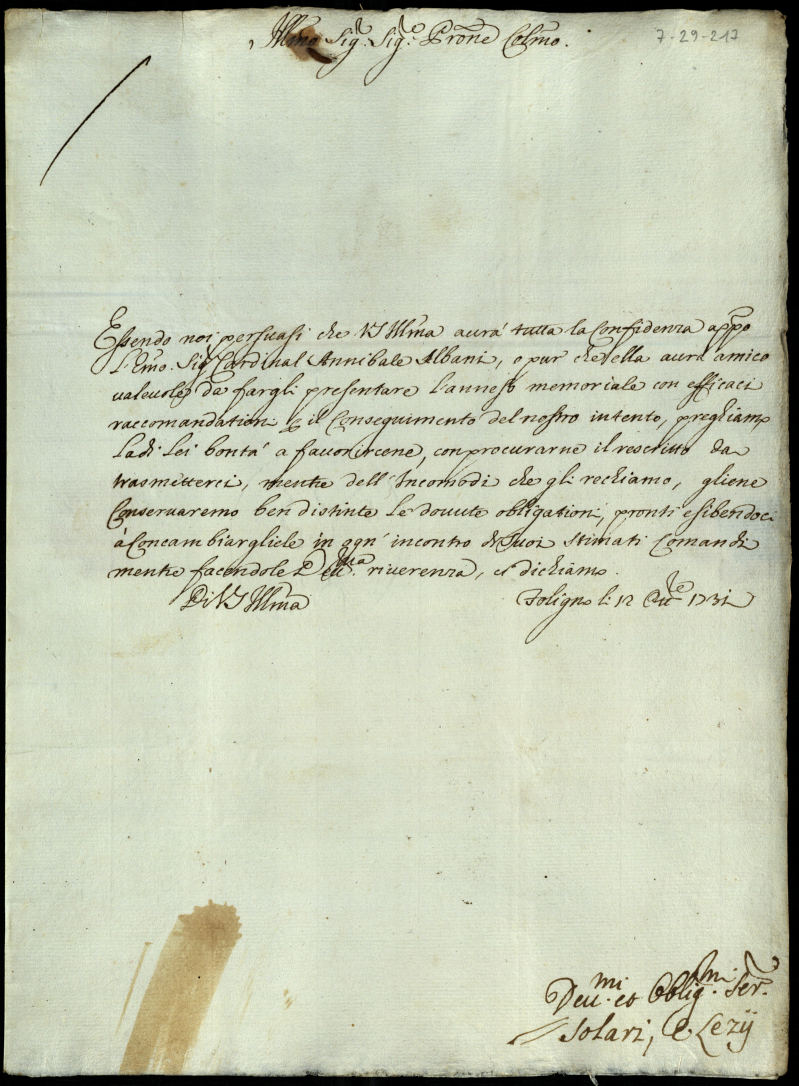 Illmo Sig.r Sig.r Prone Colmo.
7-29-217
Essendo noi persuasi che VS Illma aurá tutta la Confidenza appo
l'Emo. Sig. Cardinal Annibale Albani, o pur che ella aurá amico
valeuole da fargli presentare l'annesso memoriale con efficaci
raccomandationi p il Conseguimento del nostro intento, preghiamo
La di Lei bontá a fauorircene, con procurarne il rescritto da
trasmetterci, mentre dell'Incomodi che gli rechiamo, gliene
Conseruaremo ben distinte le douute obligationi, pronti esibendoci
á Concambiargliele in ogn' incontro de suoi stimati Comandi
mentre facendole deu.ma riuerenza, ci dichiamo.
Di VS Illma
Foligno li 12 1731
Deu.mi et Oblig.mi Ser.
Solari, e Lezij